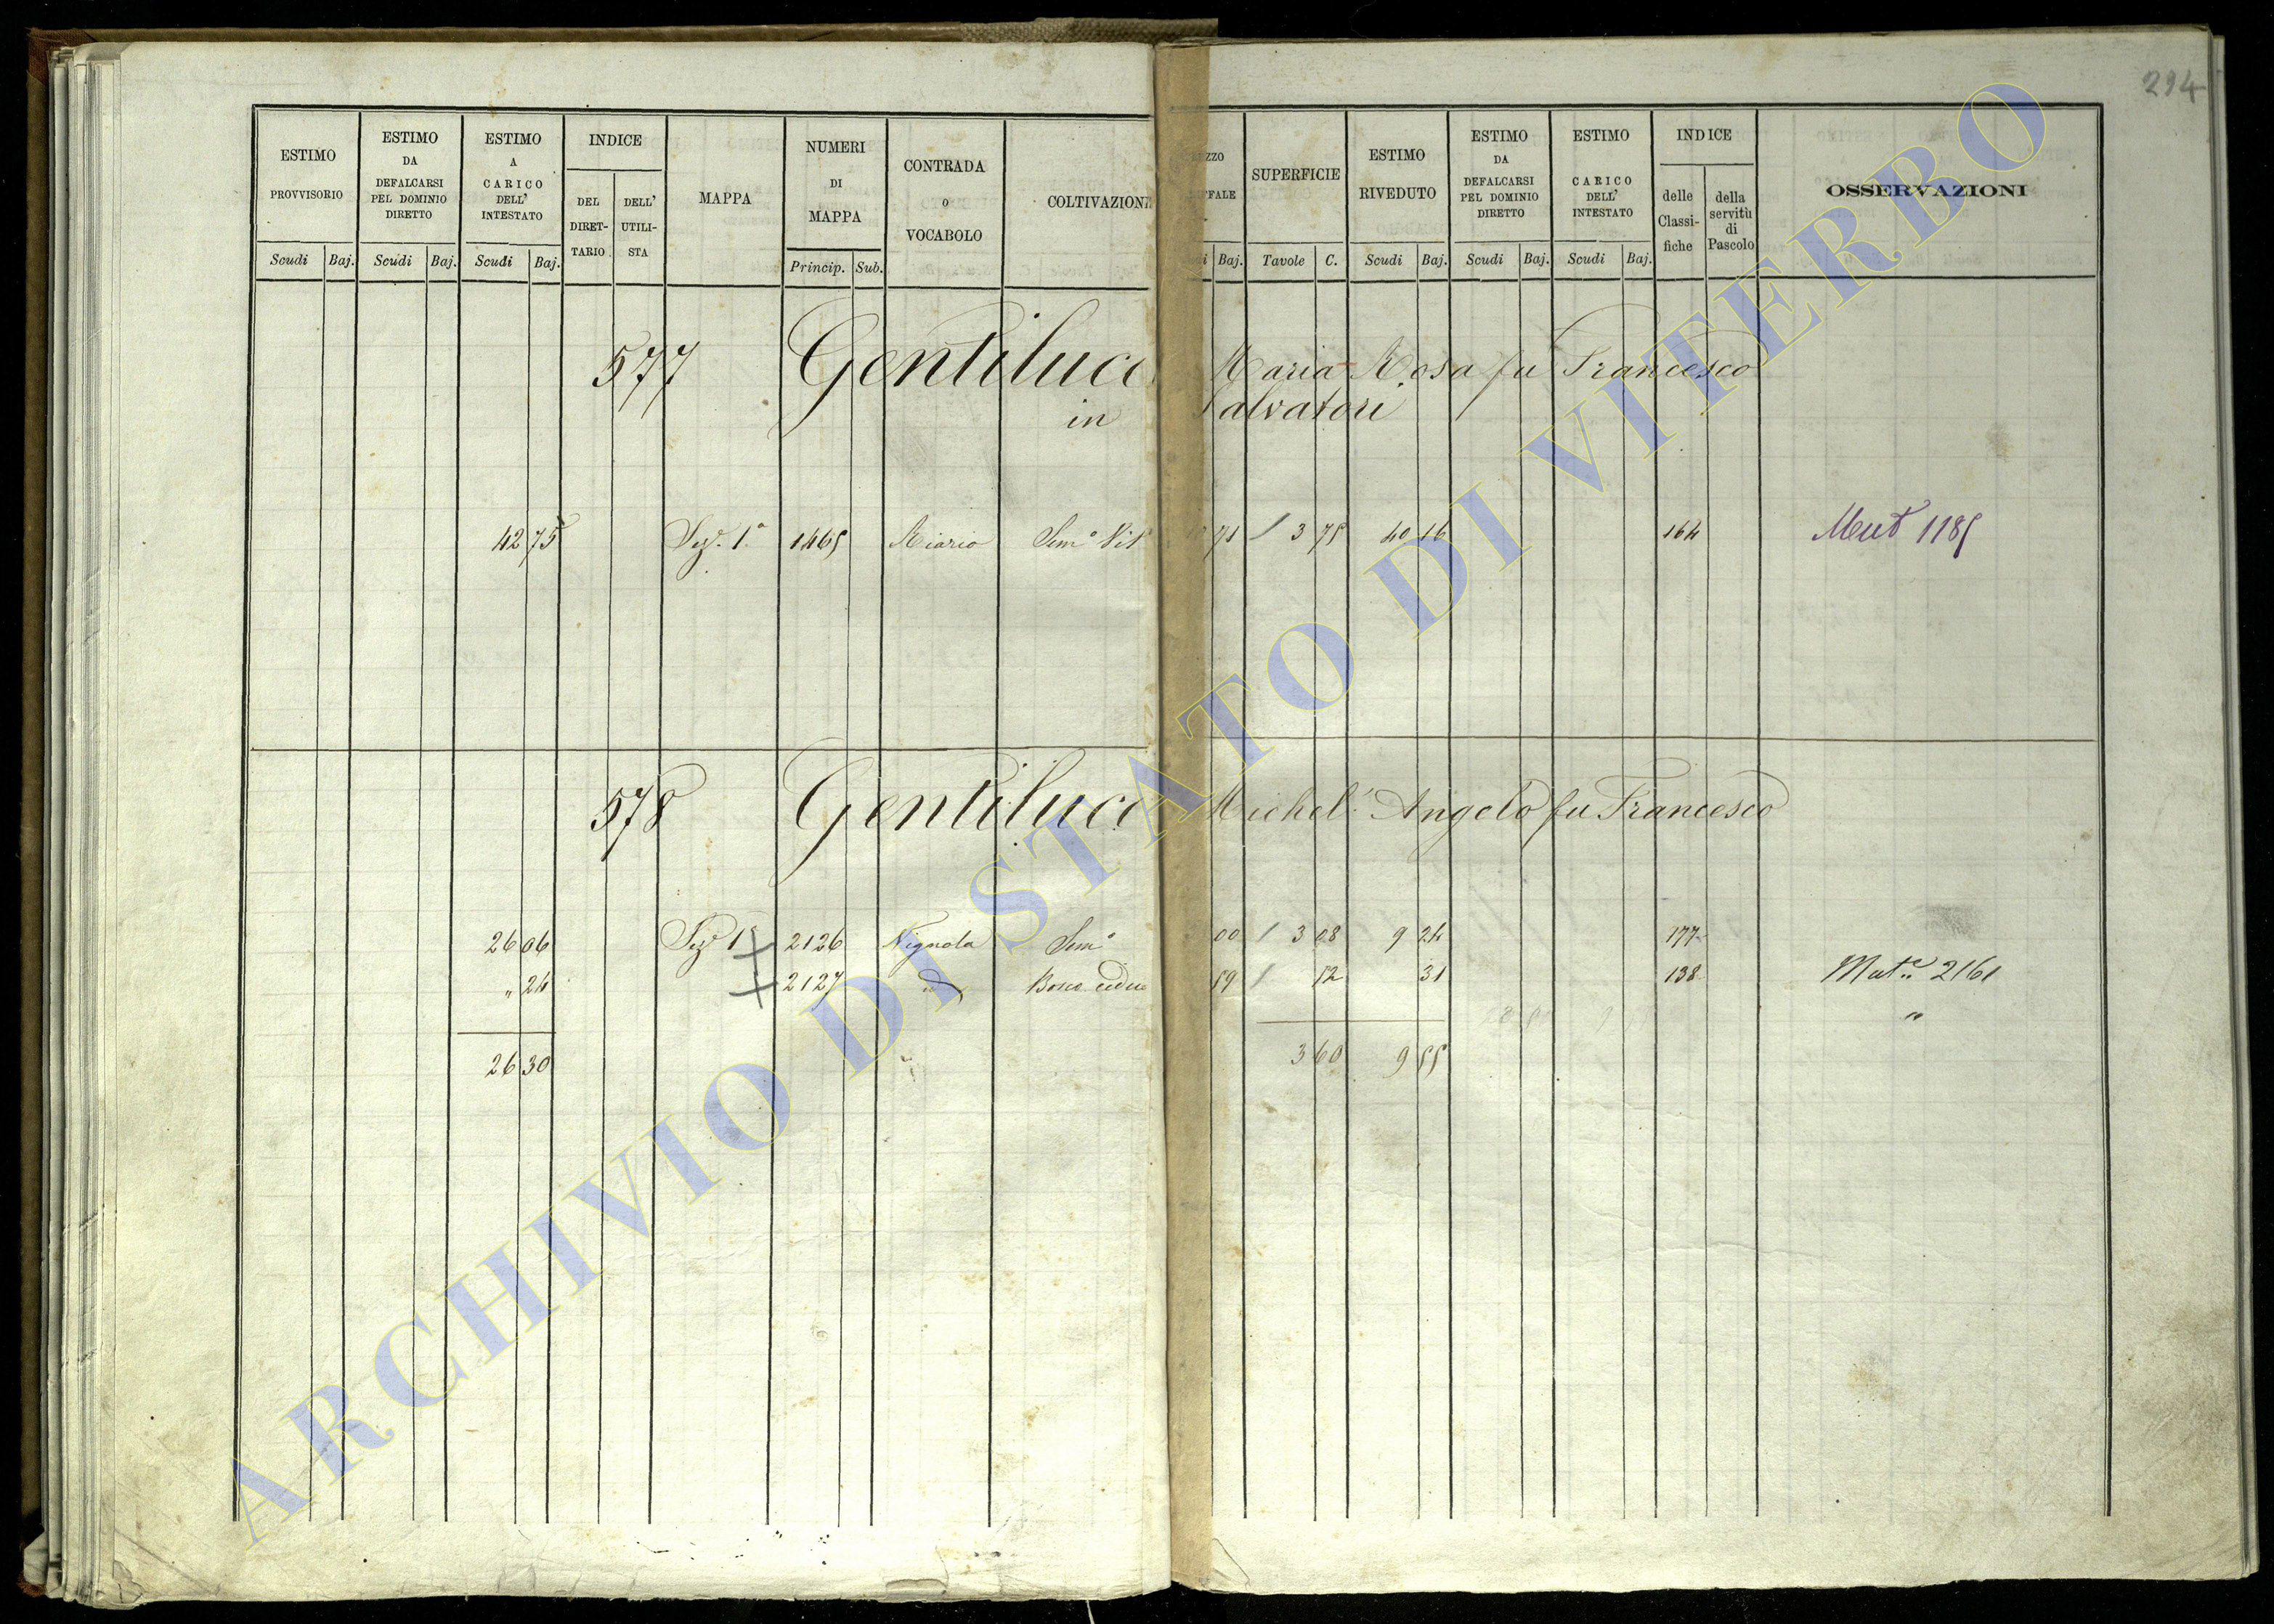 294
ESTIMO PROVVISORIO
Scudi Baj.
ESTIMO DA DEFALCARSI PEL DOMINIO DIRETTO
Scudi Baj.
ESTIMO A CARICO DELL' INTESTATO
Scudi Baj.
INDICE
DEL DIRET- TARIO
DELL' UTILI- STA
MAPPA
NUMERI DI MAPPA
Princip. Sub.
CONTRADA o VOCABOLO
COLTIVAZION
Baj.
SUPERFICIE
Tavole C.
ESTIMO RIVEDUTO
Scudi Baj.
ESTIMO DA DEFALCARSI PEL DOMINIO DIRETTO
Scudi Baj.
ESTIMO CARICO DELL' INTESTATO
Scudi Baj.
INDICE
delle Classi- fiche
della servitù di Pascolo
OSSERVAZIONI
577 Gentiluc Maria Rosa fu Francesco
in Salvatori
42 75 Sez. 1ª 1465 Riario Semº Vit 71 3 75 40 16 164 Mut 1185
578 Gentiluc Michel' Angelo fu Francesco
26 06 Sezº 1ª 2126 Semº 00 3 08 9 24 177
" 24 2127 Bosco ceduo 59 52 31 138 Mut.e 2161
"
26 30 3 60 9 55
ARCHIVIO DI STATO DI VITERBO